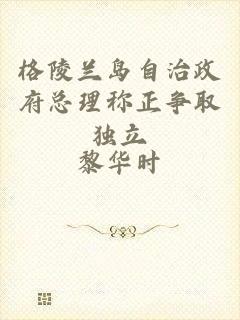 格陵兰岛自治政
府总理称正争取
独立
黎华时